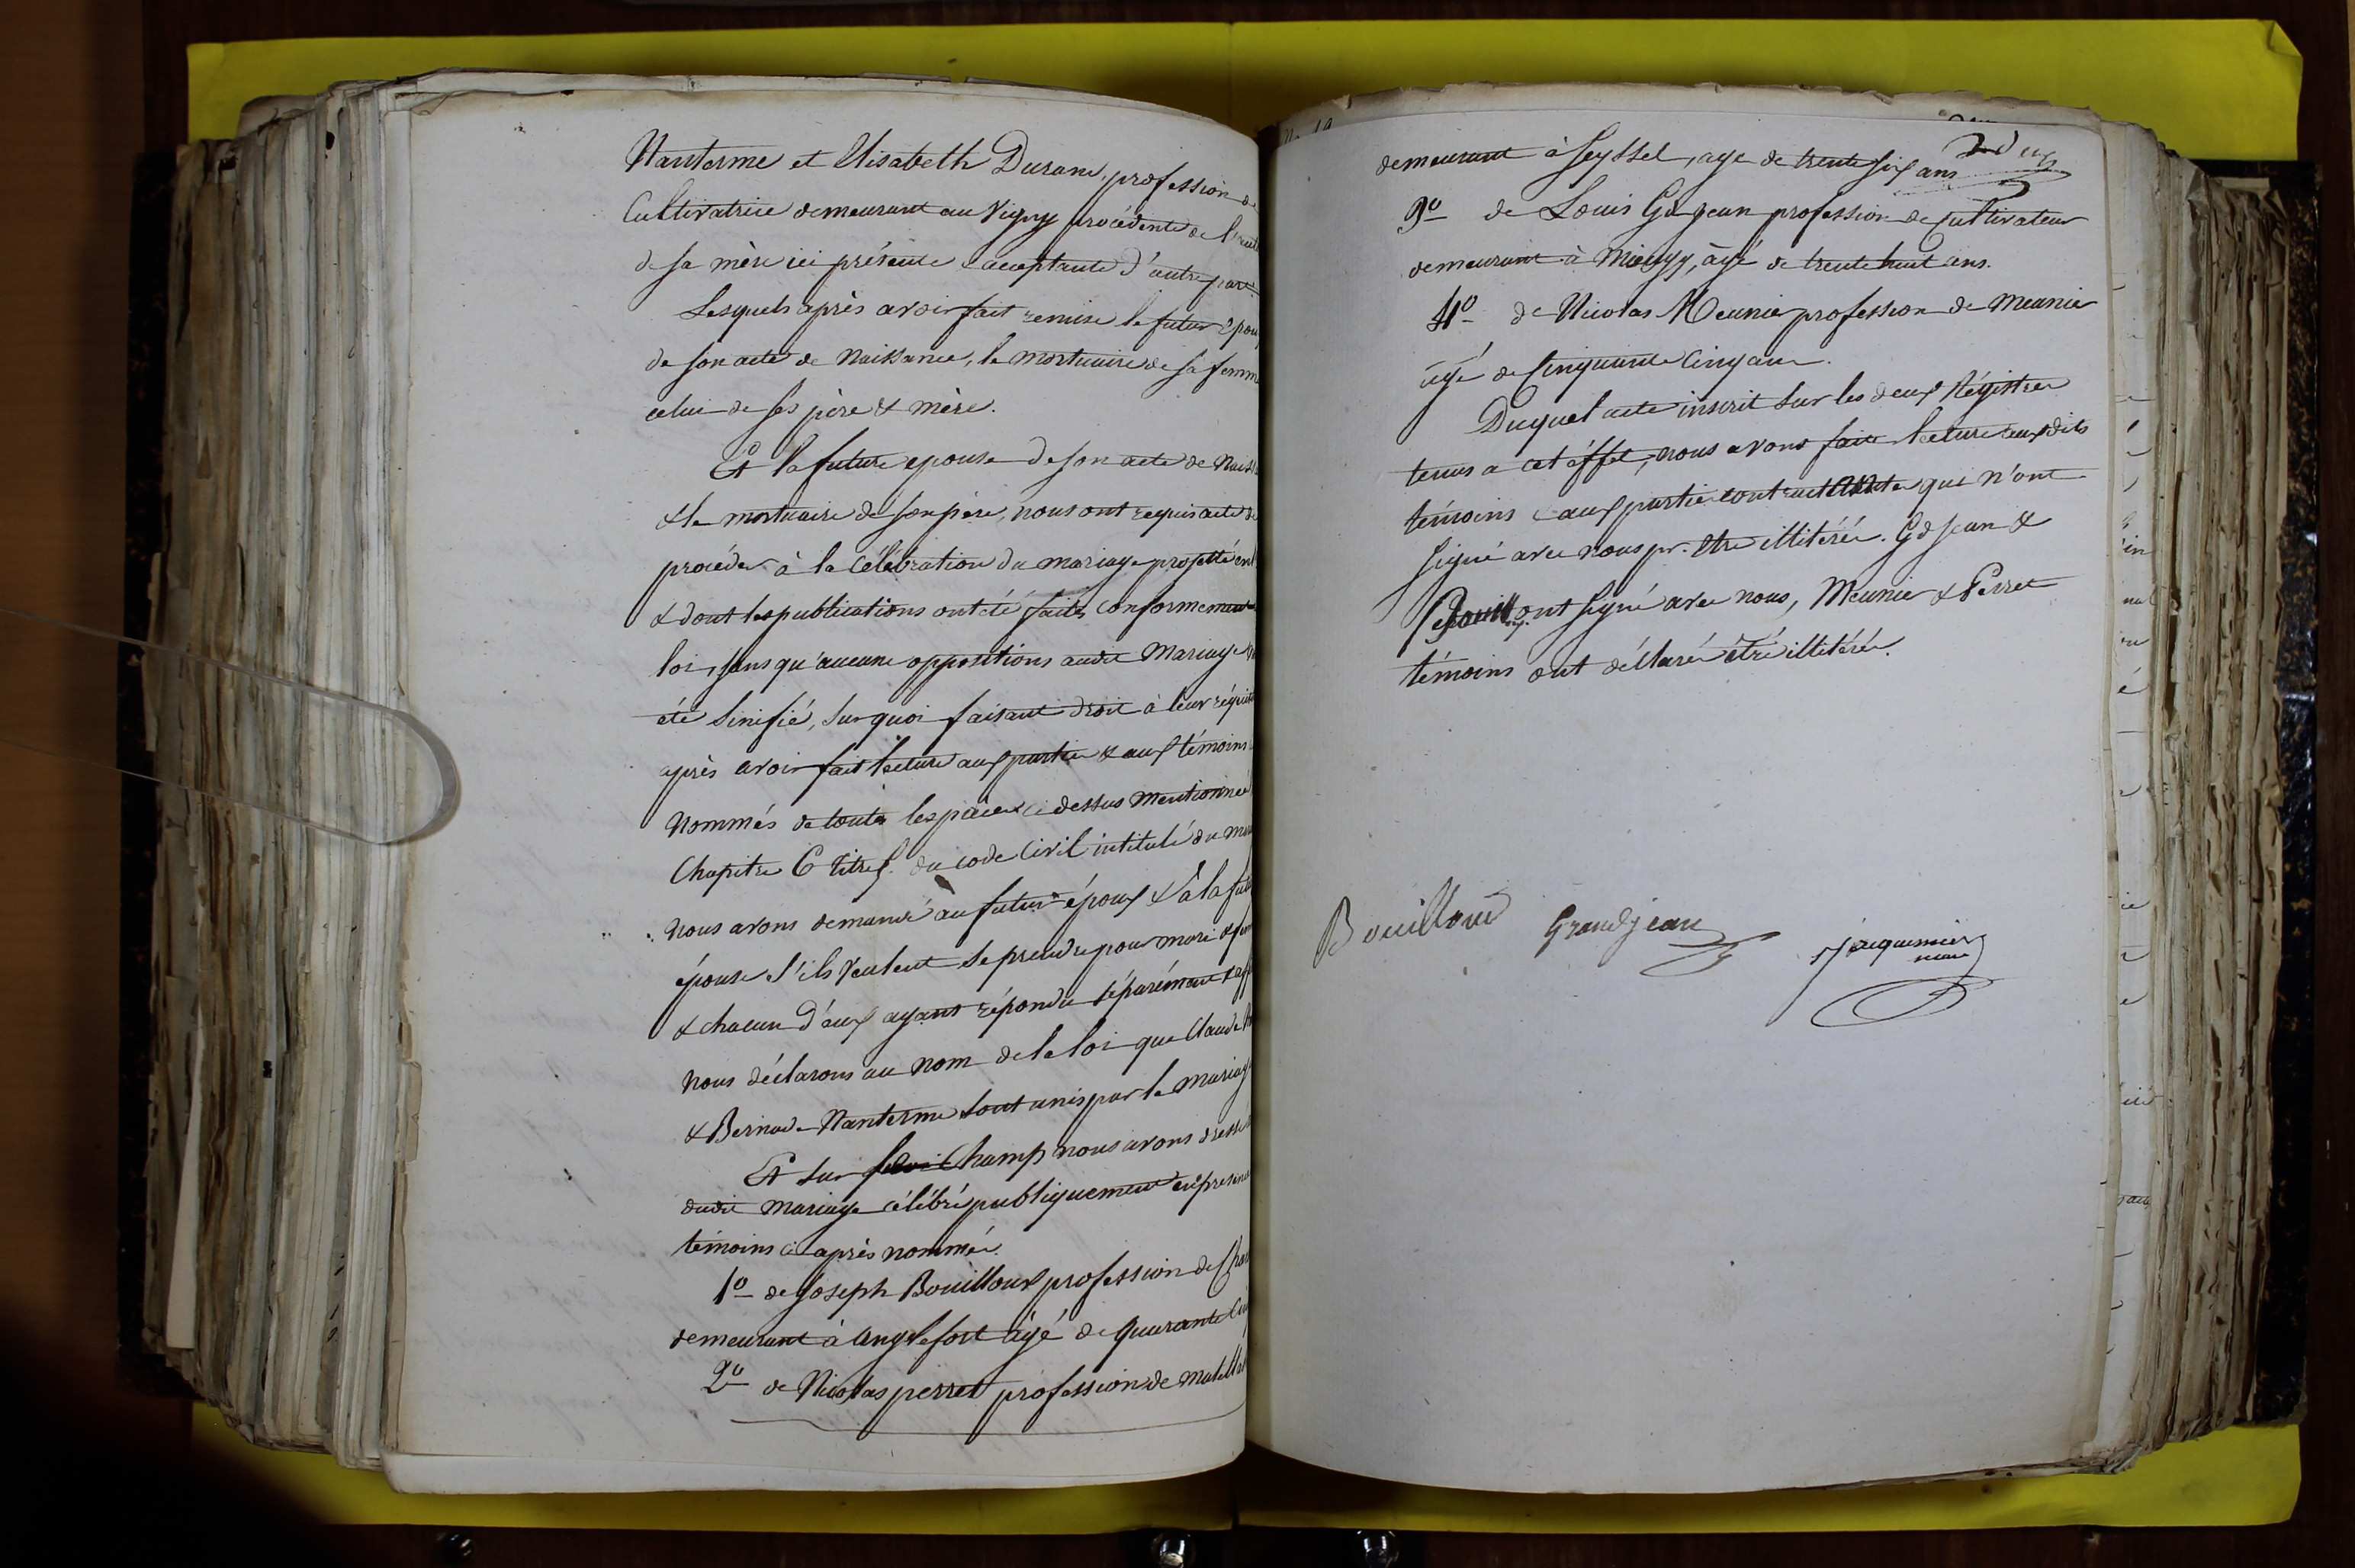 Nanterme et Elisabeth Durand, profession de
Cultivatrice demeurant au Vigny procédente de l'
de sa mère ici présente & acceptante d'autre part.
Lesquels après avoir fait remise le futur Epoux
de son acte de Naissance, le mortuaire de sa femme
celui de ses père & mère.
Et la future epouse de son acte de Naiss
& le mortuaire de son père, nous ont requis acte de
procéder à la Célébration du mariage projetté
& dont les publications ont été faites conformement
loi, sans qu'aucune oppositions audit Mariage
été sinifié, sur quoi faisant droit à leur réquis
après avoir fait lecture aux parties & aux témoins
Nommés de toutes les pièces ci dessus mentionnées
Chapitre 6 titre 5. du code Civil intitulé du
nous avons demandé au futur époux & à la fut
épouse s'ils veulent se prendre pour mari &
& chacun d'eux ayant répondu séparément &
Nous déclarons au nom de la loi que Claude
& Bernade Nanterme sont unis par le mariage
Et sur Champ nous avons dressé
dudit mariage célébré publiquement en presence
témoins ci après nommés.
1º de Joseph Bouilloux profession de
demeurant à anglefort âgé de quarante
2º de Nicolas perret profession de matellot
demeurant à Seyssel, age de trente six ans
3º de Louis Gd jean profession de Cultivateur
demeurant à Mieugy, âgé de trente huit ans.
4º de Nicolas Meunier profession de Meunier
âgé de Cinquante Cinq ans.
Duquel acte inscrit sur les deux Régistres
tenus à cet éffet, nous avons fait lecture auxdits
témoins & aux parties contractantes qui n'ont
signé avec nous pr. être illitérés. Gd jean &
ont signé avec nous, Meunier & Perret
témoins ont déclaré être illitérés.
Bouilloud Grandjean Jacquemier
maire